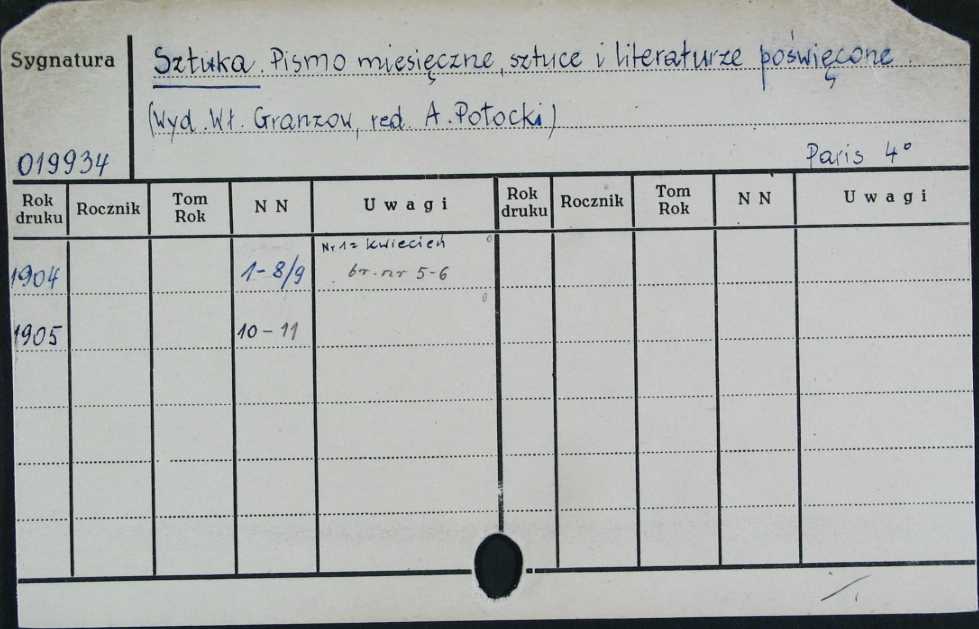 Sygnatura
Sztuka. Pismo miesięczne, sztuce i literaturze poświęcone.
(Wyd. Wł. Granzow, red. A. Potocki)
019934
Paris 4°
Rok druku Rocznik Tom Rok N N Uwagi Rok druku Rocznik Tom Rok N N Uwagi
Nr 1 = kwiecień
1904 1-8/9 br. nr 5-6
1905 10-11